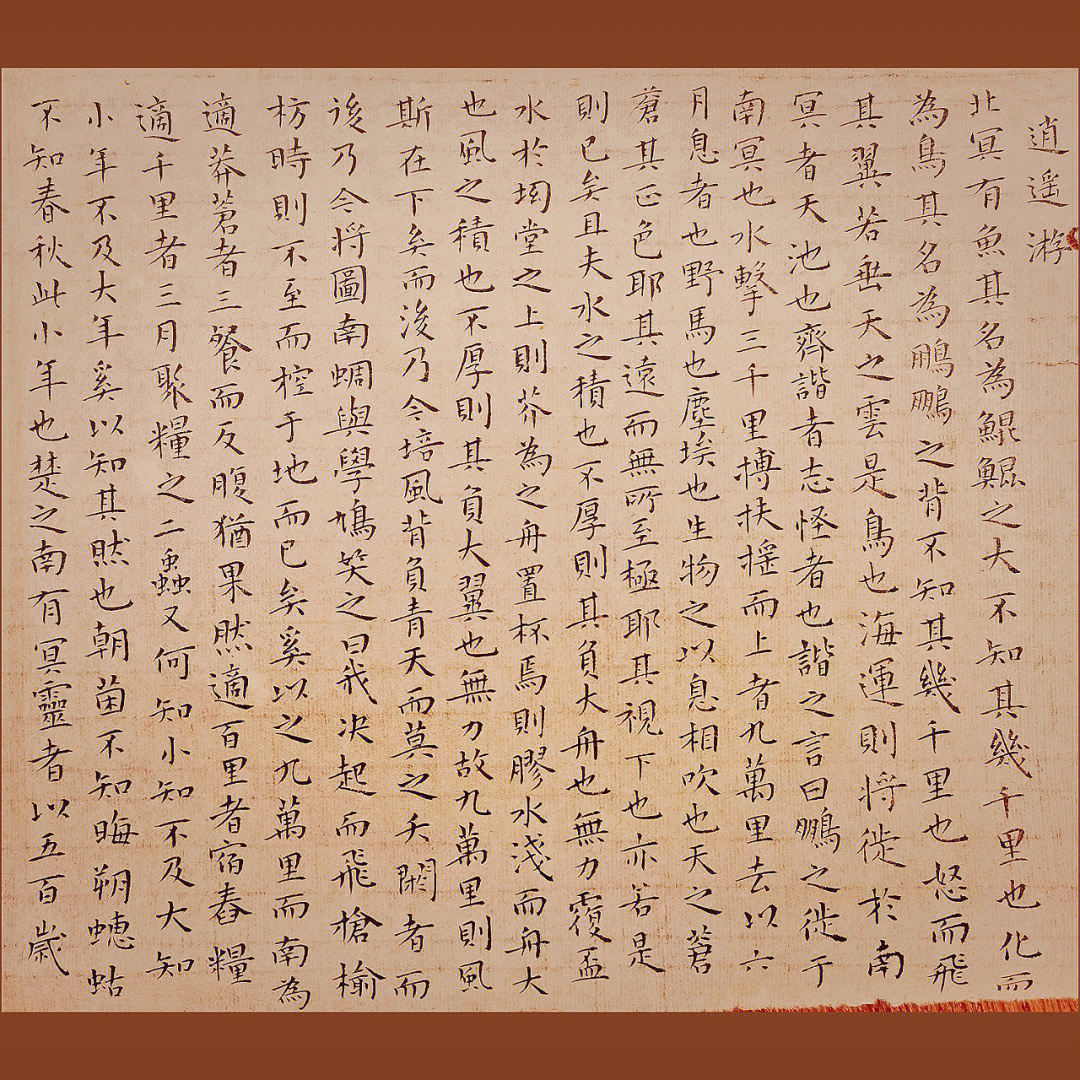 逍遥游
北冥有魚其名為鯤鯤之大不知其幾千里也化而
為鳥其名為鵬鵬之背不知其幾千里也怒而飛
其翼若垂天之雲是鳥也海運則将徙於南
冥者天池也齊諧者志怪者也諧之言曰鵬之徙于
南冥也水擊三千里摶扶摇而上者九萬里去以六
月息者也野馬也塵埃也生物之以息相吹也天之蒼
蒼其正色耶其遠而無所至極耶其視下也亦若是
則已矣且夫水之積也不厚則其負大舟也無力覆盃
水於坳堂之上則芥為之舟置杯焉則膠水淺而舟大
也風之積也不厚則其負大翼也無力故九萬里則風
斯在下矣而後乃今培風背負青天而莫之夭閼者而
後乃今将圖南蜩與學鳩笑之曰我决起而飛槍榆
枋時則不至而控于地而已矣奚以之九萬里而南為
適莽蒼者三餐而反腹猶果然適百里者宿舂糧
適千里者三月聚糧之二蟲又何知小知不及大知
小年不及大年奚以知其然也朝菌不知晦朔蟪蛄
不知春秋此小年也楚之南有冥靈者以五百歲